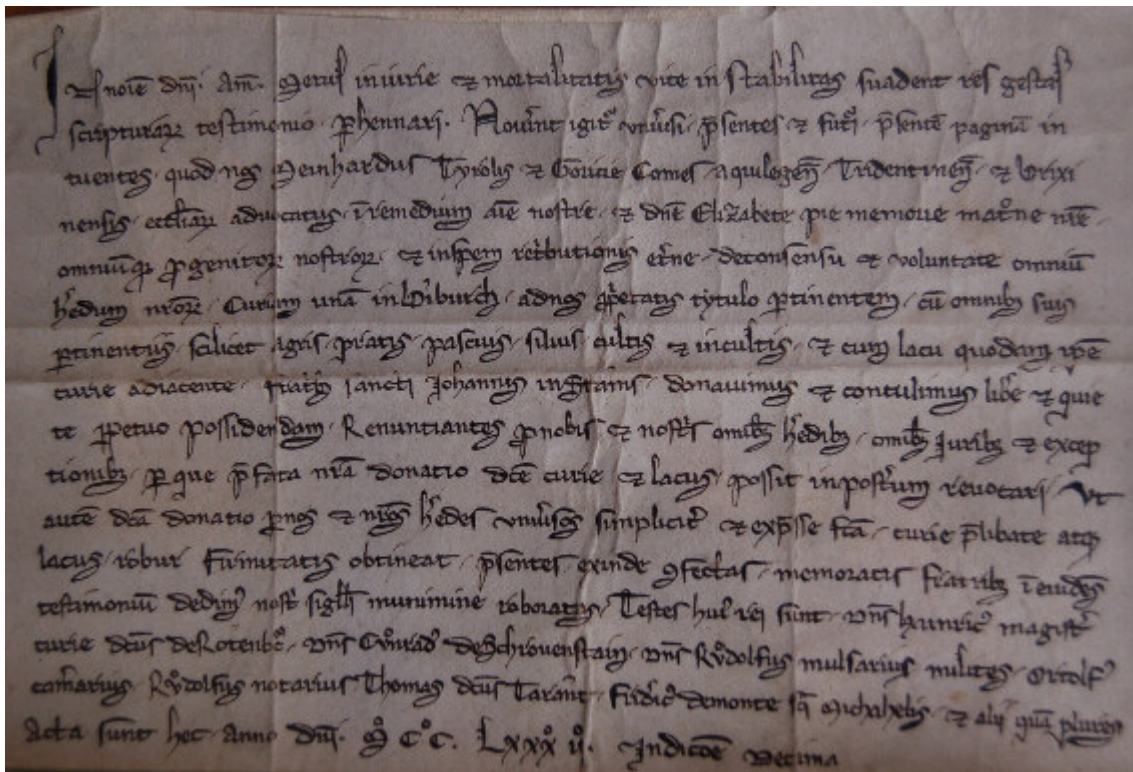 In noīe dn̄i. Am̄. Metus iniurie ⁊ mortalitatis vite instabilitas suadent res gestas
scripturarꝝ testimonio ꝑhennari. Nouerint igit᷑ vniūsi p̄sentes ⁊ fut᷑i p̄sentē paginā in
tuentes, quod nos Meinhardus Tyrolis ⁊ Goricie Comes, aquilegen̄, Tridentinen̄, ⁊ brixi
nensis, eccl̄iarꝝ aduocatus, ī remedium aīe nostre, ⁊ dn̄e Elizabete pie memorie mat᷑ne nr̄e,
omniūqꝫ ꝓgenitorꝝ nostrorꝝ, ⁊ inspem ret᷑butionis et᷑ne, deconsensu ⁊ voluntate omniū
h᷑edum nr̄orꝝ, Curiam unā in, adnos ꝓp᷑etatis tytulo ꝑtinentem, cū omnibꝫ suis
ꝑtinentiis, scilicet agris, pratis, pascuis, siluis cultis ⁊ incultis, ⁊ cum lacu quodam ip̄e
curie adiacente, frat᷑bꝫ sancti Johannis, donauimus ⁊ contulimus lib᷑e ⁊ quie
te ꝑpetuo possidendam, Renuntiantes ꝓnobis ⁊ nost᷑s om̄ibꝫ h᷑edibꝫ, om̄ibꝫ Juribꝫ ⁊ excep
tionibꝫ, ꝑ que p̄fata nr̄a donatio dc̄e curie ⁊ lacus, possit inpost᷑um reuocari, Vt
autē dc̄a donatio ꝑnos ⁊ nr̄os h᷑edes vniūsos simplicit᷑ ⁊ exp̄sse fc̄a, curie p̄libate atqꝫ
lacus, robur firmitatis obtineat, p̄sentes exinde ꝯfectas, memoratis fratribꝫ ī euidens
testimoniū dedimꝰ nost᷑ sigilli munimine roboratas, Testes huiꝰ rei sunt, Dn̄s Hainricꝰ magist᷑
curie dc̄us deRotenb᷑c, Dn̄s Cůnradꝰ deSchrouenstain, Dn̄s Růdolfus mulsarius milites, Ortolfꝰ
cam᷑arius, Růdolfus notarius, Thomas dc̄us Tarant, Fridicꝰ demonte sc̄i Michahelis, ⁊ alij quā plures
Acta sunt hec Anno dn̄i. Mͦ CͦCͦ. Lxxxͦ ijͦ. Indictōe Decima